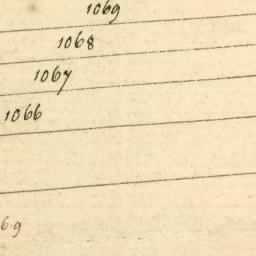 1069
1068
1067
1066
69